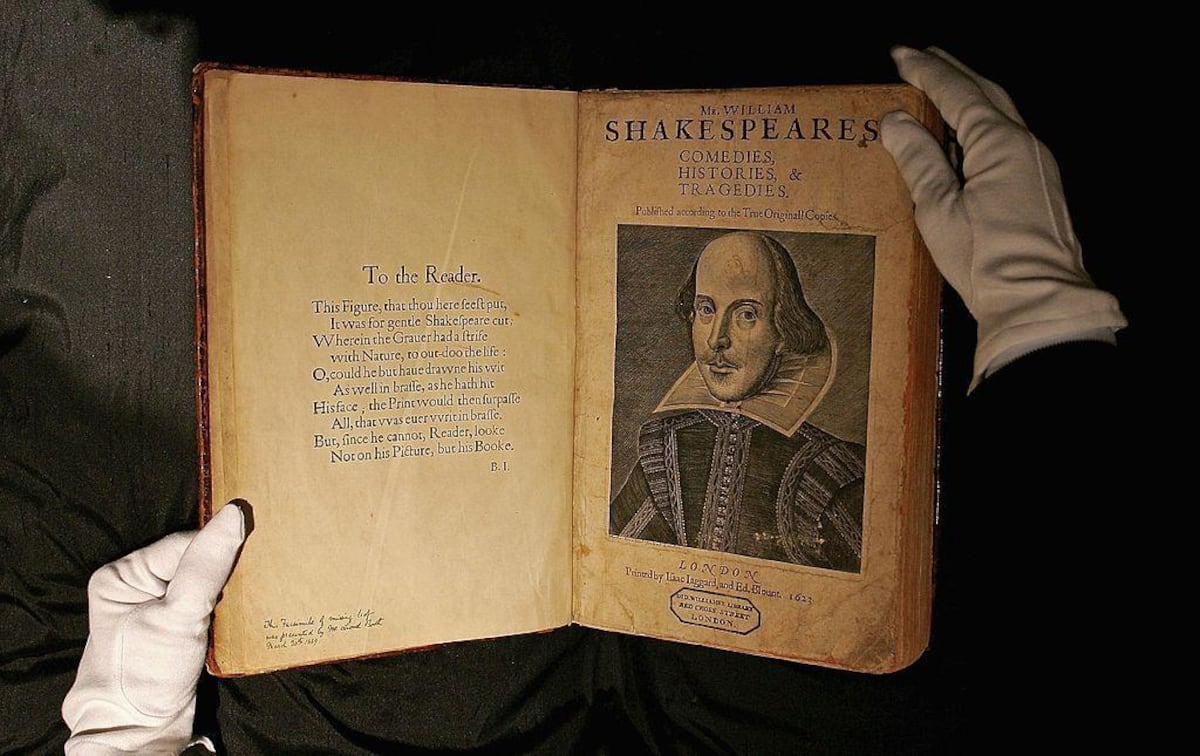 To the Reader.
This Figure, that thou here ſeeſt put,
It was for gentle Shakeſpeare cut;
Wherein the Grauer had a ſtrife
with Nature, to out-doo the life :
O, could he but haue dravvne his vvit
As well in braſſe, as he hath hit
His face , the Print would then ſurpaſſe
All, that vvas euer vvrit in braſſe.
But, ſince he cannot, Reader, looke
Not on his Picture, but his Booke.
B. I.
This Facsimile of missing leaf
was presented by Mr
March 20th
Mr. WILLIAM
SHAKESPEARES
COMEDIES,
HISTORIES, &
TRAGEDIES.
Publiſhed according to the True Originall Copies.
LONDON
Printed by Iſaac Iaggard, and Ed. Blount. 1623
DR. WILLIAMS'S LIBRARY
RED CROSS STREET
LONDON.